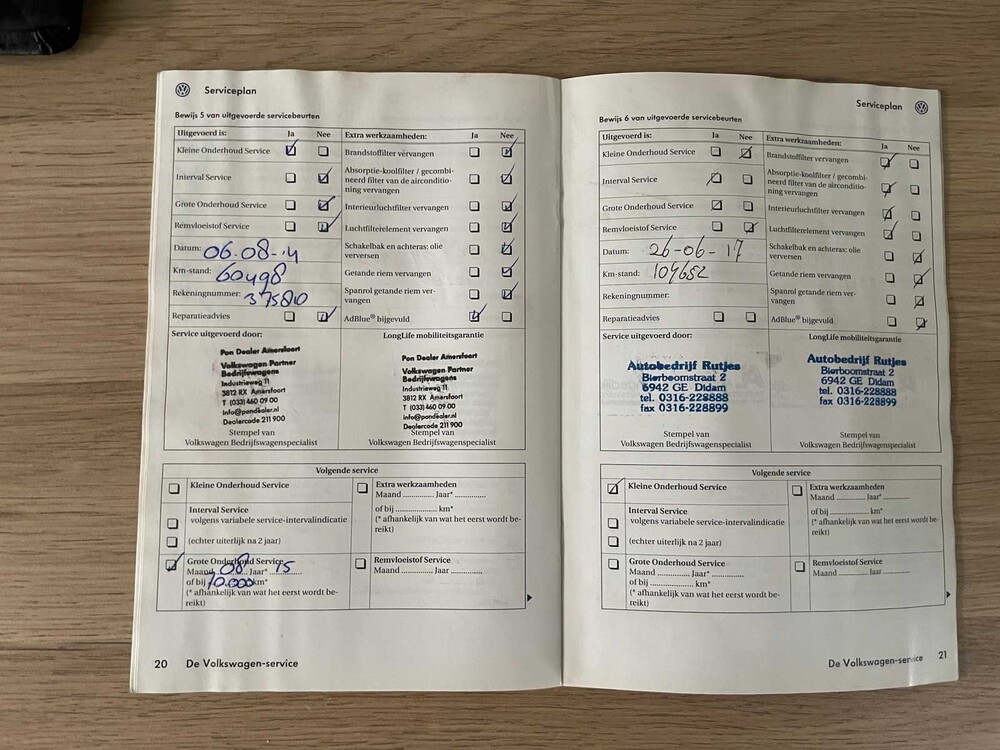 Serviceplan
Bewijs 5 van uitgevoerde servicebeurten
Uitgevoerd is: Ja Nee Extra werkzaamheden: Ja Nee
Kleine Onderhoud Service
Interval Service
Grote Onderhoud Service
Remvloeistof Service
Datum: 06-08-14
Km-stand: 60498
Rekeningnummer: 375810
Reparatieadvies
Brandstoffilter vervangen
Absorptie-koolfilter / gecombi-
neerd filter van de airconditio-
ning vervangen
Interieurluchtfilter vervangen
Luchtfilterelement vervangen
Schakelbak en achteras: olie
verversen
Getande riem vervangen
Spanrol getande riem ver-
vangen
AdBlue® bijgevuld
Service uitgevoerd door:
Pon Dealer Amersfoort
Volkswagen Partner
Bedrijfswagens
Industrieweg 11
3812 RX Amersfoort
T (033) 460 09 00
info@pondealer.nl
Dealercode 211 900
Stempel van
Volkswagen Bedrijfswagenspecialist
LongLife mobiliteitsgarantie
Pon Dealer Amersfoort
Volkswagen Partner
Bedrijfswagens
Industrieweg 11
3812 RX Amersfoort
T (033) 460 09 00
info@pondealer.nl
Dealercode 211 900
Stempel van
Volkswagen Bedrijfswagenspecialist
Volgende service
Kleine Onderhoud Service
Interval Service
volgens variabele service-intervalindicatie
(echter uiterlijk na 2 jaar)
Grote Onderhoud Service
Maand 08 Jaar* 15
of bij 10.000 km*
(* afhankelijk van wat het eerst wordt be-
reikt)
Extra werkzaamheden
Maand .............. Jaar* ..............
of bij ...................... km*
(* afhankelijk van wat het eerst wordt be-
reikt)
Remvloeistof Service
Maand .............. Jaar ..............
20 De Volkswagen-service
Serviceplan
Bewijs 6 van uitgevoerde servicebeurten
Uitgevoerd is: Ja Nee Extra werkzaamheden: Ja Nee
Kleine Onderhoud Service
Interval Service
Grote Onderhoud Service
Remvloeistof Service
Datum: 26-06-17
Km-stand: 104652
Rekeningnummer:
Reparatieadvies
Brandstoffilter vervangen
Absorptie-koolfilter / gecombi-
neerd filter van de airconditio-
ning vervangen
Interieurluchtfilter vervangen
Luchtfilterelement vervangen
Schakelbak en achteras: olie
verversen
Getande riem vervangen
Spanrol getande riem ver-
vangen
AdBlue® bijgevuld
Service uitgevoerd door:
Autobedrijf Rutjes
Bierboomstraat 2
6942 GE Didam
tel. 0316-228888
fax 0316-228899
Stempel van
Volkswagen Bedrijfswagenspecialist
LongLife mobiliteitsgarantie
Autobedrijf Rutjes
Bierboomstraat 2
6942 GE Didam
tel. 0316-228888
fax 0316-228899
Stempel van
Volkswagen Bedrijfswagenspecialist
Volgende service
Kleine Onderhoud Service
Interval Service
volgens variabele service-intervalindicatie
(echter uiterlijk na 2 jaar)
Grote Onderhoud Service
Maand .............. Jaar* ..............
of bij ...................... km*
(* afhankelijk van wat het eerst wordt be-
reikt)
Extra werkzaamheden
Maand .............. Jaar* ..............
of bij ...................... km*
(* afhankelijk van wat het eerst wordt be-
reikt)
Remvloeistof Service
Maand .............. Jaar ..............
De Volkswagen-service 21